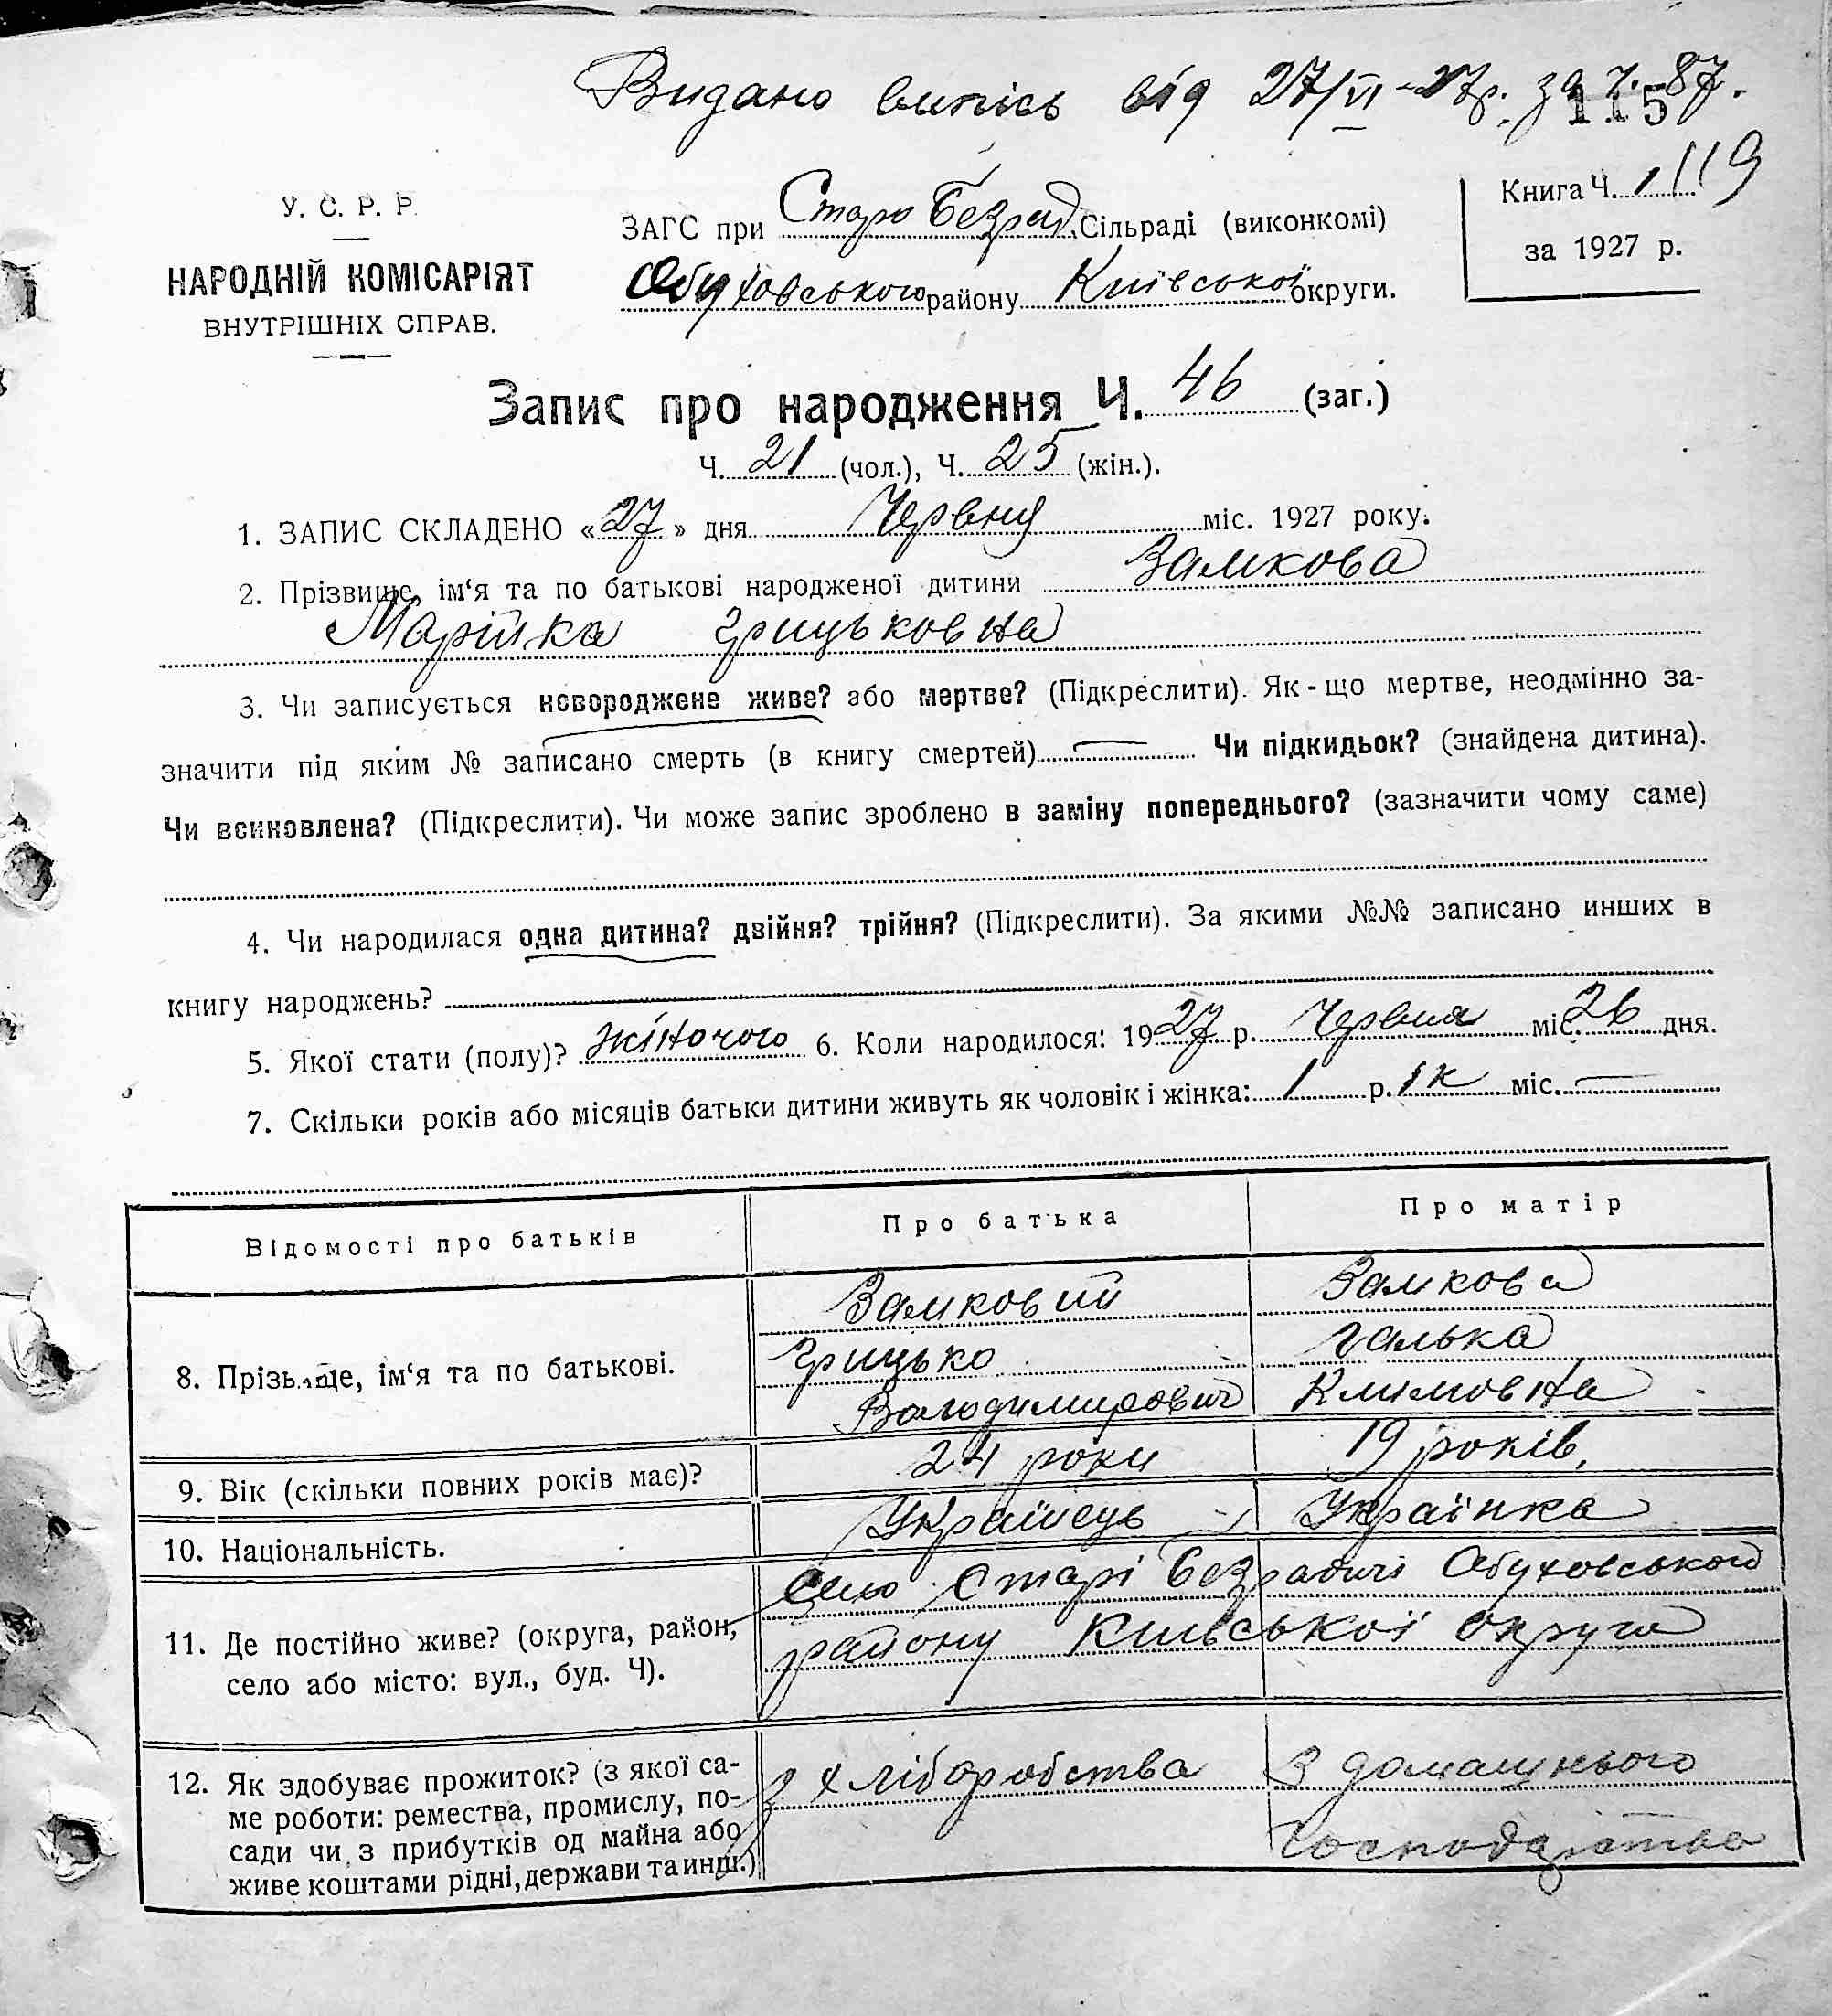 Видано випісь від 27/VI-27р. за ч. 87.
115
119
У. С. Р. Р.
НАРОДНІЙ КОМІСАРІЯТ
ВНУТРІШНІХ СПРАВ.
ЗАГС при Старо Безрад. Сільраді (виконкомі)
Обуховського району Київської округи.
Книга Ч. 1
за 1927 р.
Запис про народження Ч. 46 (заг.)
Ч. 21 (чол.), Ч. 25 (жін.).
1. ЗАПИС СКЛАДЕНО «27» дня Червня міс. 1927 року.
2. Прізвище, ім‘я та по батькові народженої дитини Замкова
Марійка Грицьковна
3. Чи записується новороджене живе? або мертве? (Підкреслити). Як-що мертве, неодмінно за-
значити під яким № записано смерть (в книгу смертей) — Чи підкидьок? (знайдена дитина).
Чи всиновлена? (Підкреслити). Чи може запис зроблено в заміну попереднього? (зазначити чому саме)
4. Чи народилася одна дитина? двійня? трійня? (Підкреслити). За якими №№ записано инших в
книгу народжень?
5. Якої стати (полу)? жіночого 6. Коли народилося: 1927 р. Червня міс. 26 дня.
7. Скільки років або місяців батьки дитини живуть як чоловік і жінка: 1 р. 1к міс. —
Відомості про батьків Про батька Про матір
8. Прізвище, ім‘я та по батькові.
Замковий
Грицько
Володимирович
Замкова
Галька
Климовна
9. Вік (скільки повних років має)? 24 роки 19 років.
10. Національність. Українець Українка
11. Де постійно живе? (округа, район,
село або місто: вул., буд. Ч).
село Старі Безрадичі Обуховського
району Київської округи
12. Як здобуває прожиток? (з якої са-
ме роботи: ремества, промислу, по-
сади чи з прибутків од майна або
живе коштами рідні, держави та инш.)
з хліборобства
З домашнього
господарства